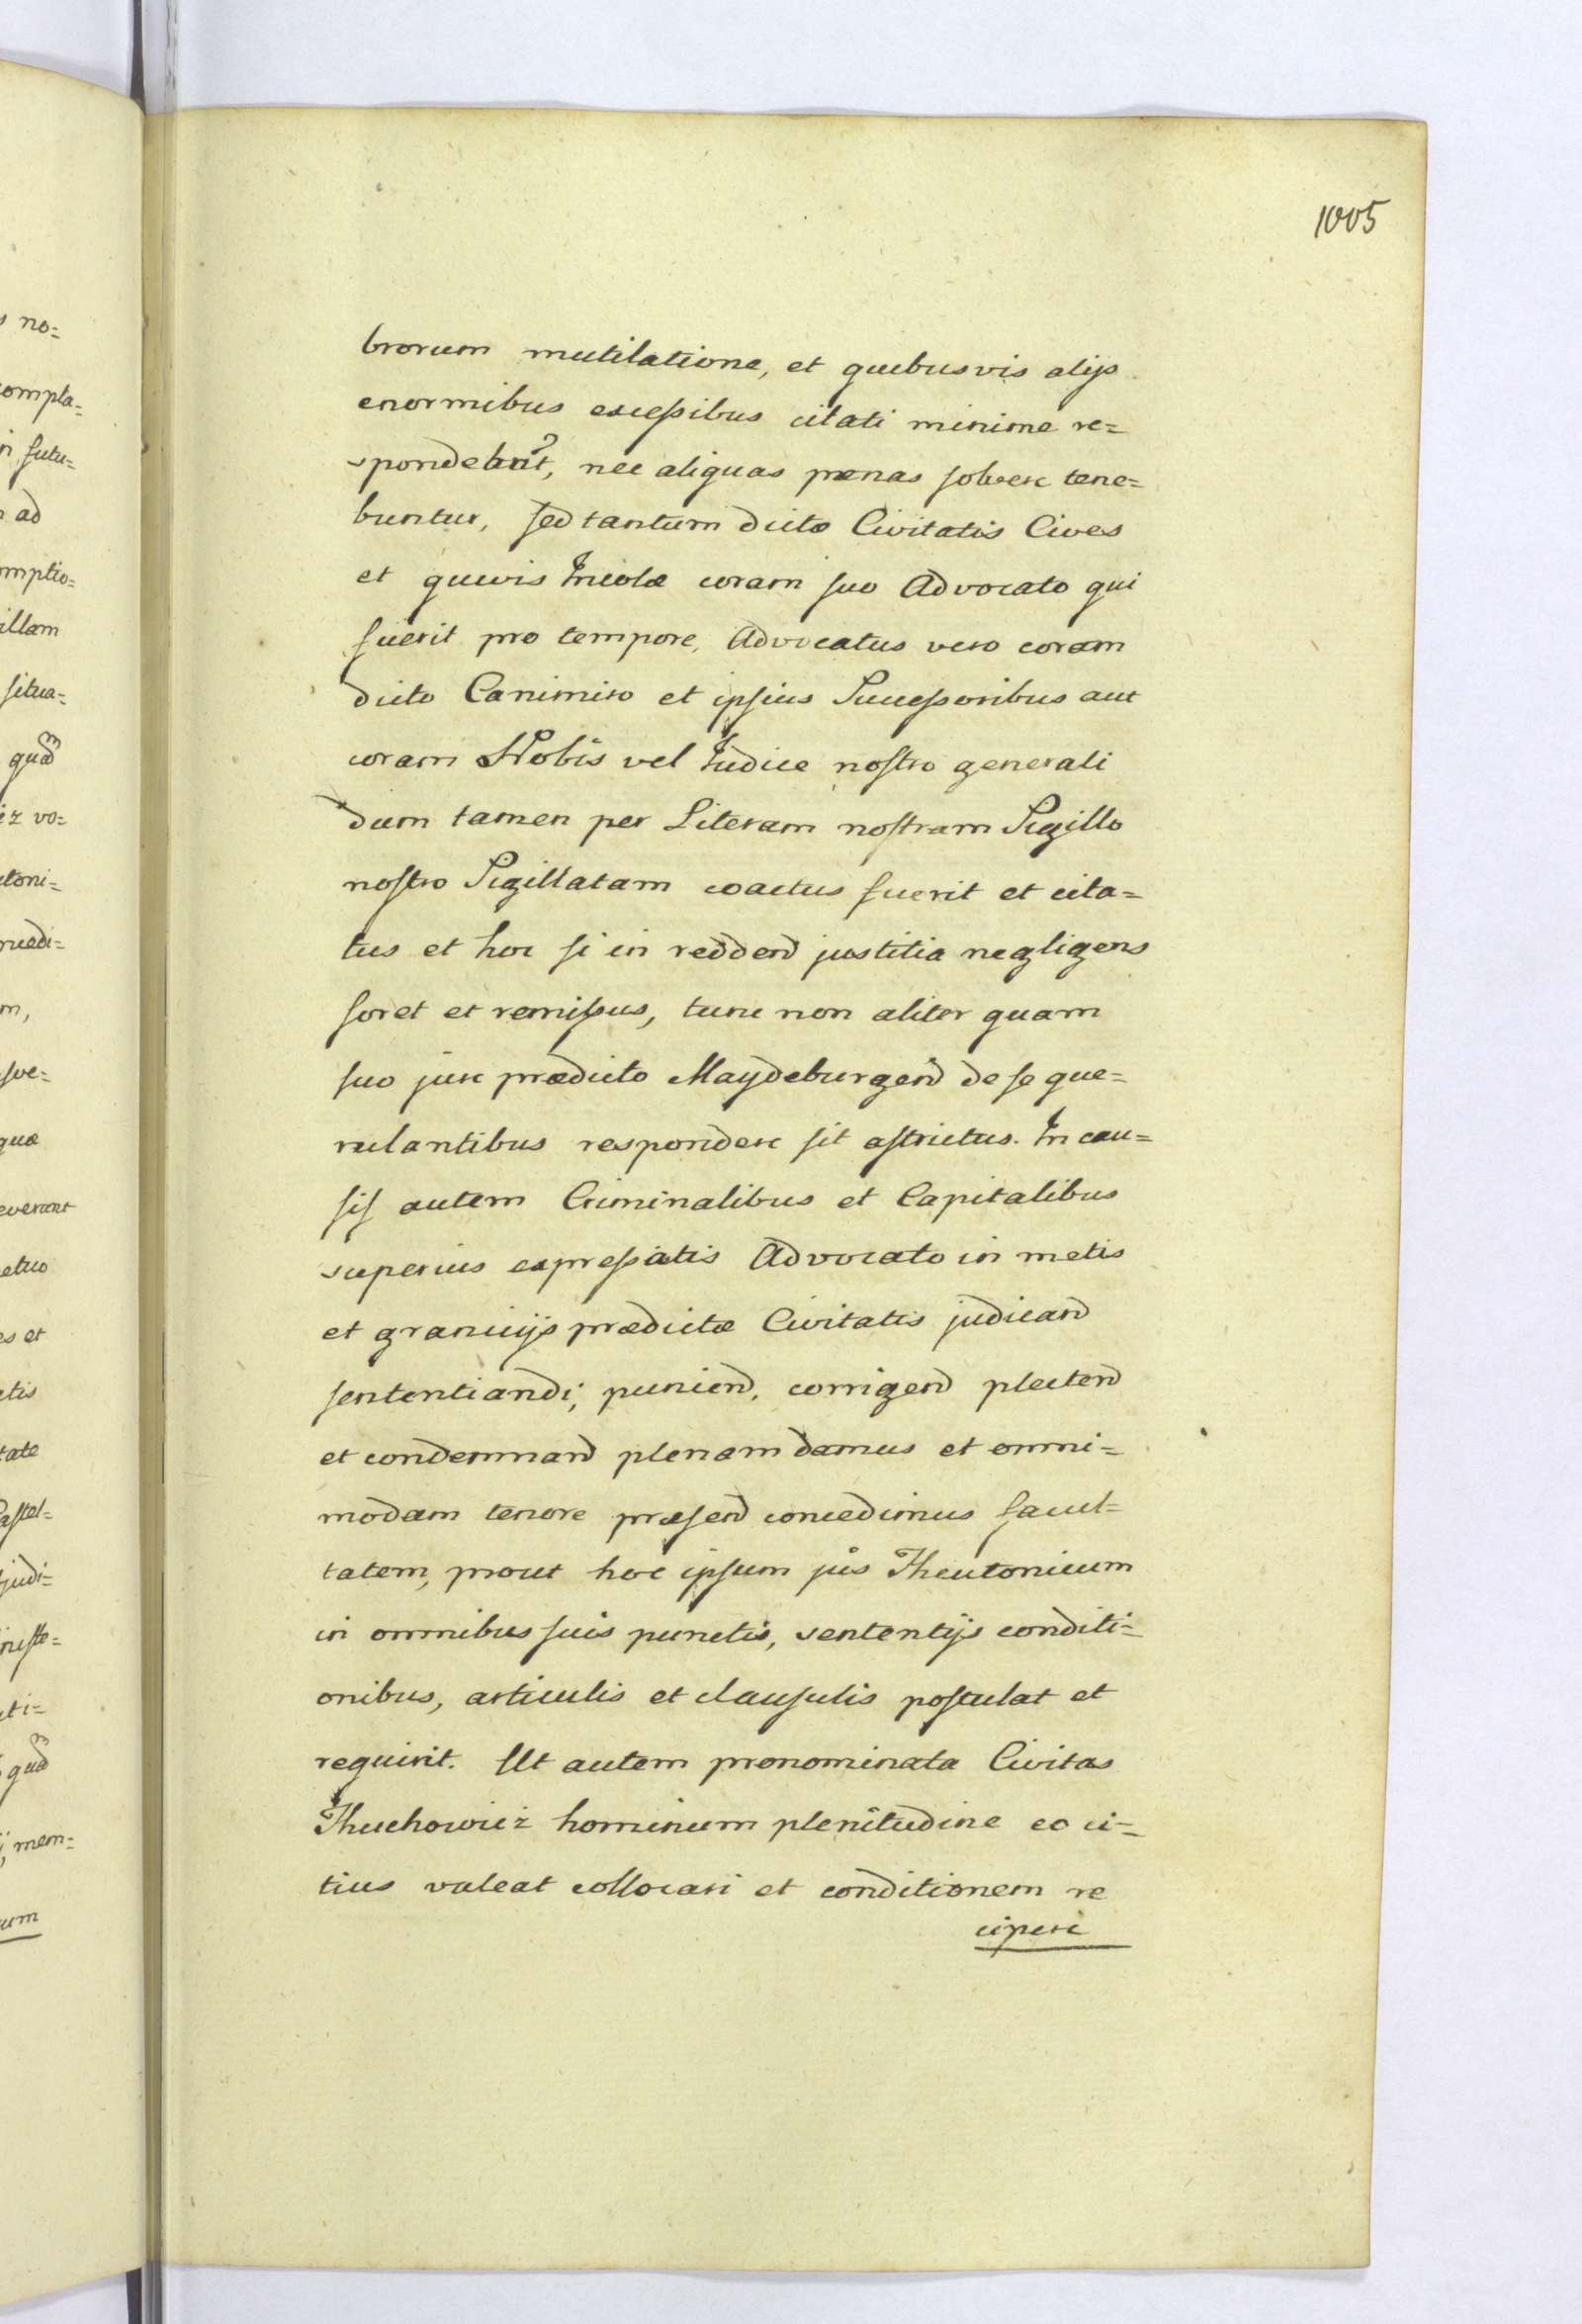 1005
brorum mutilatione, et quibusvis alijs
enormibus excessibus citati minime re=
spondebnt, nec aliquas pœnas solvere tene=
buntur, sed tantum dictæ Civitatis Cives
et quivis Incolæ coram suo Advocato qui
fuerit pro tempore, Advocatus vero coram
dicto Canimiro et ipsius Successoribus aut
coram Nobis vel Judice nostro generali
dum tamen per Literam nostram Sigillo
nostro Sigillatam coactus fuerit et cita=
tus et hoc si in reddend justitia negligens
foret et remissus, tunc non aliter quam
suo jure prædicto Maydeburgend de se que=
rulantibus respondere sit astrictus. In cau=
sis autem Criminalibus et Capitalibus
superius expressatis Advocato in metis
et granicijs prædictæ Civitatis judicand
sententiandi, puniend, corrigend plectend
et condemnand plenam damus et omni=
modam tenore præsend concedimus facul=
tatem, prout hoc ipsum jus Theutonicum
in omnibus suis punctis, sententijs conditi=
onibus, articulis et clausulis postulat et
requirit. Ut autem prænominata Civitas
Thuchowicz hominum plenitudine eo ci=
tius valeat collocari et conditionem re
cipere
s no=
compla=
n futu=
n ad
mptio=
illam
situa=
quad
iz vo=
utoni=
medi=
m,
sve=
quæ
everant
etuo
es et
etis
tate
Castel=
judi=
niste=
ti=
quad
mem=
um